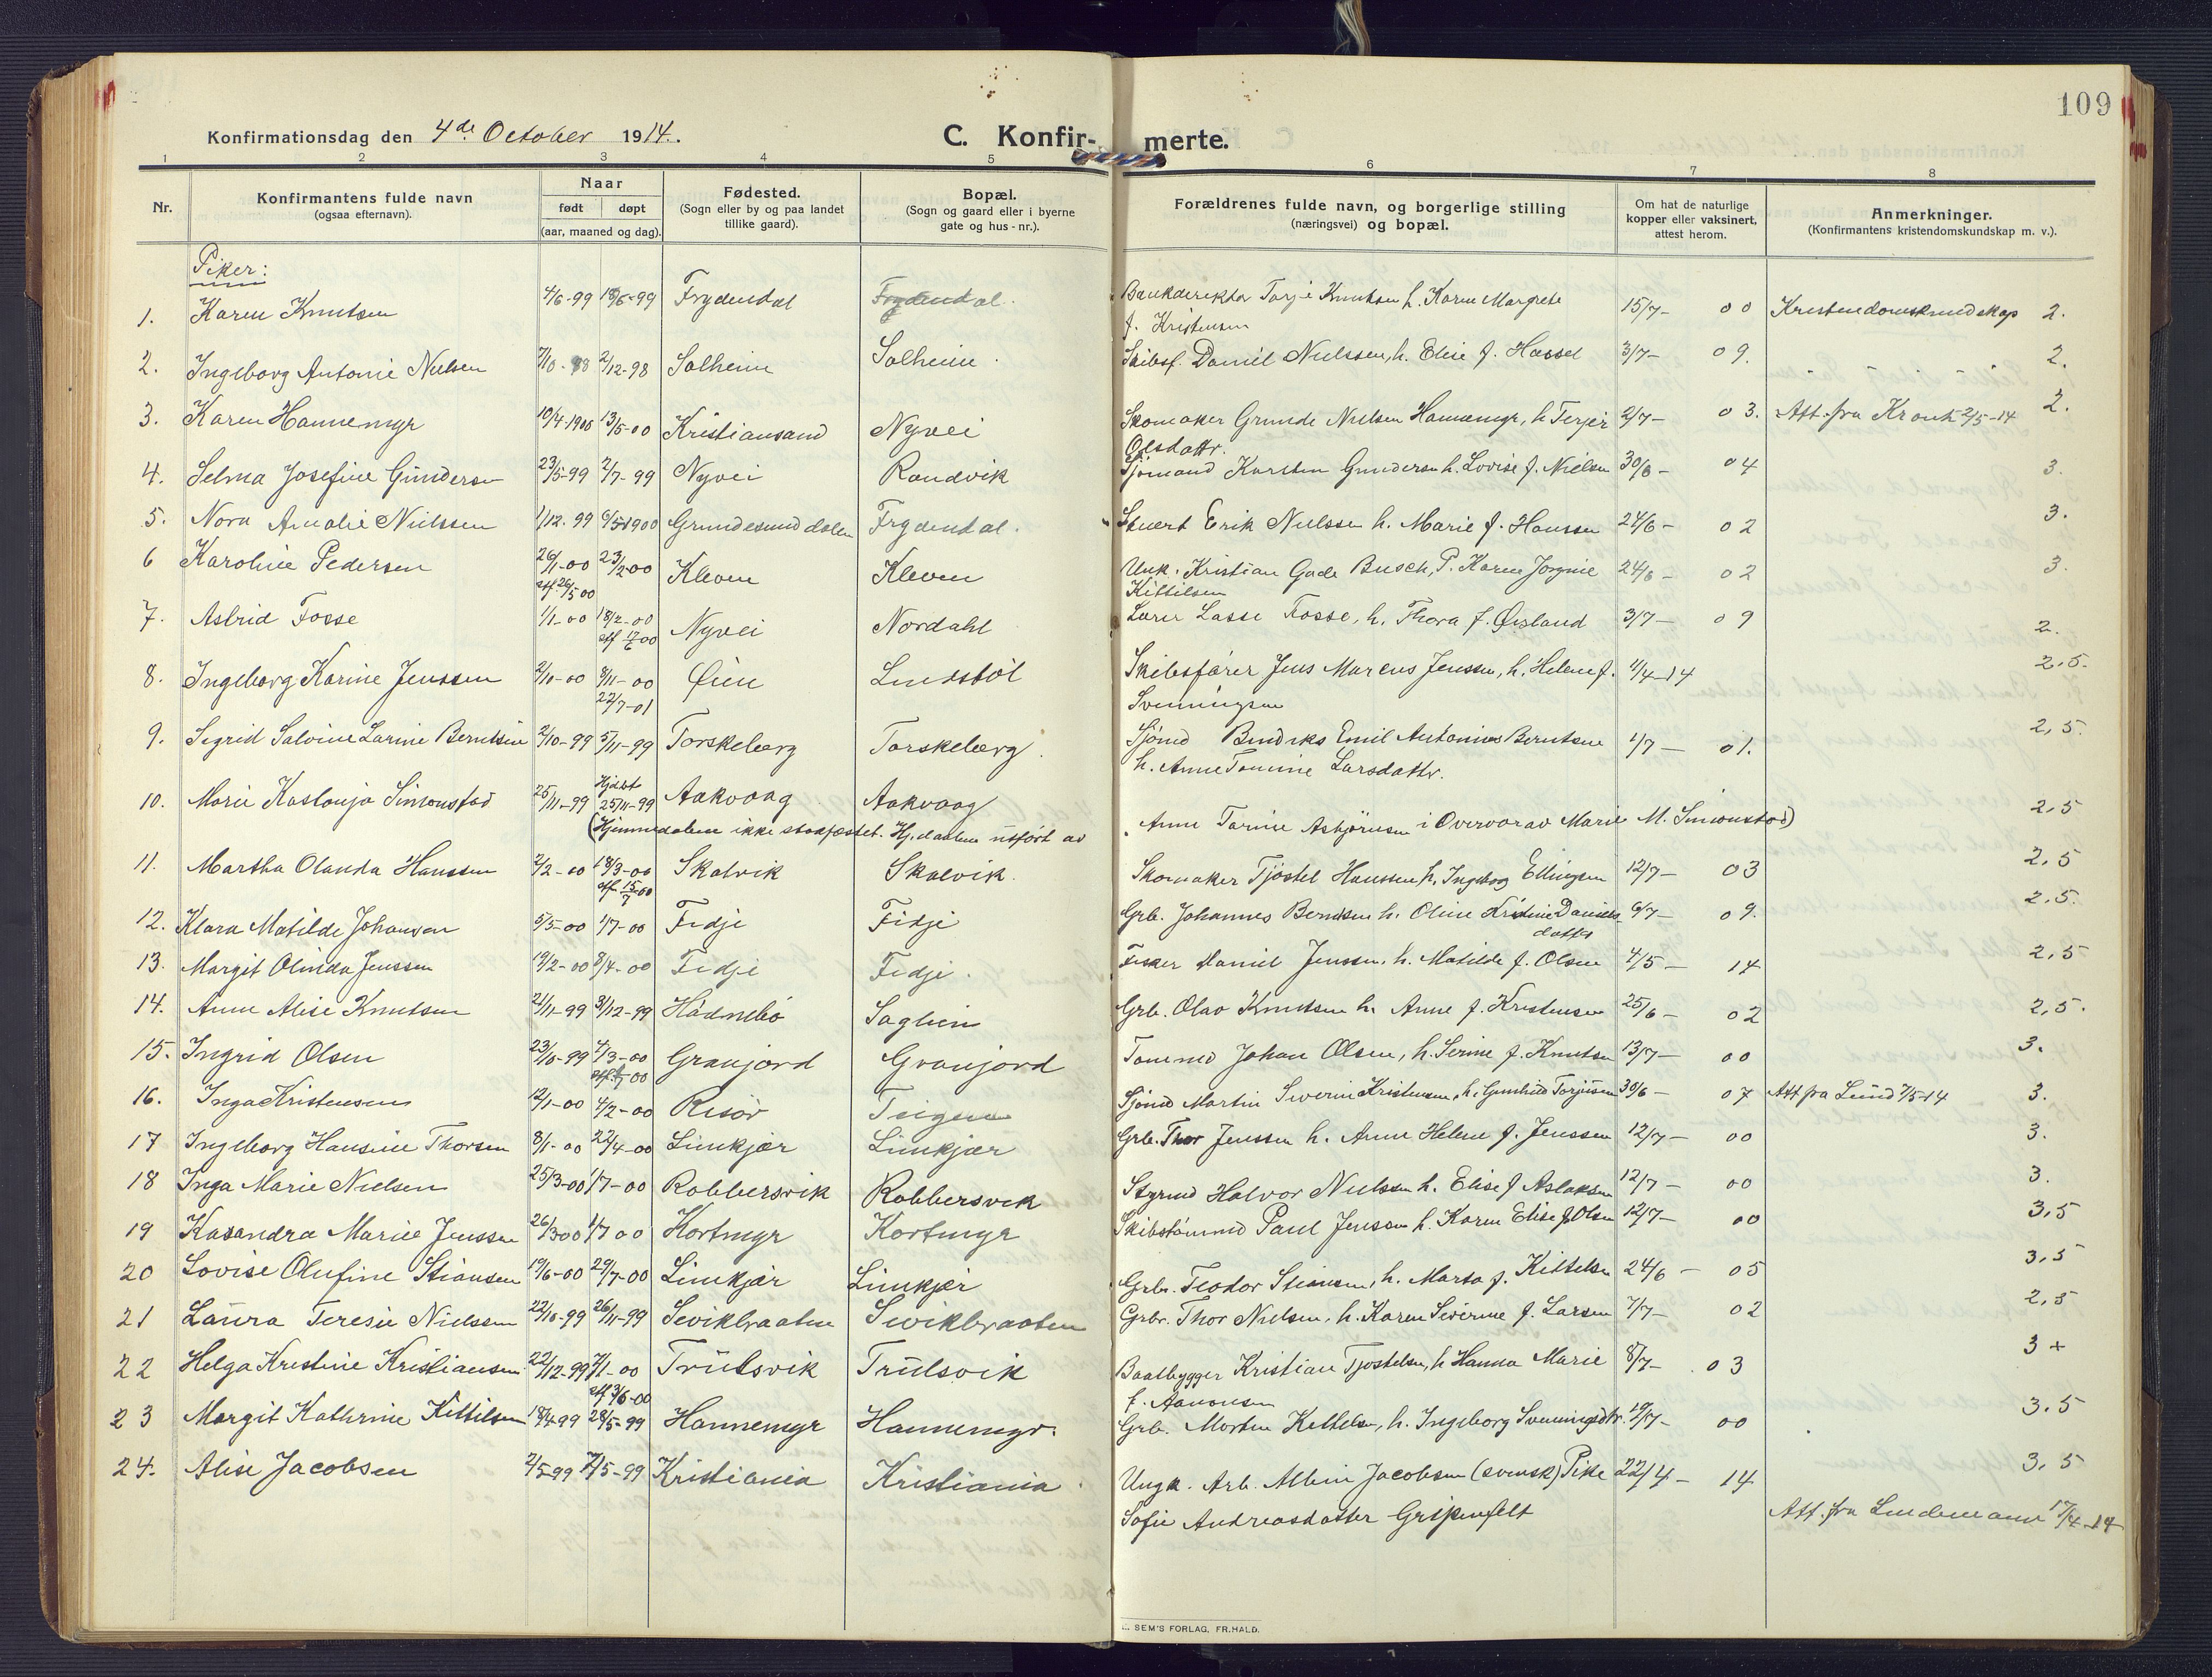 109
Konfirmationsdag den 4de October 1914.
C. Konfir- merte.
1 2 3 4 5 6 7 8
Nr.
Konfirmantens fulde navn
(ogsaa efternavn).
Naar
født døpt
(aar, maaned og dag).
Fødested.
(Sogn eller by og paa landet
tillike gaard).
Bopæl.
(Sogn og gaard eller i byerne
gate og hus-nr.).
Forældrenes fulde navn, og borgerlige stilling
(næringsvei) og bopæl.
Om hat de naturlige
kopper eller vaksinert,
attest herom.
Anmerkninger.
(Konfirmantens kristendomskundskap m. v.).
Piker:
1. Karen Knutsen 4/6-99 18/6-99 Frydendal Frydendal. Bankdirektør Tarje Knutsen h. Karen Margrete 15/7- 00 Kristendomskundskap 2.
f. Kristensen
2. Ingeborg Antonie Nielsen 7/10-98 2/12-98 Solheim Solheim. Skibsf. Daniel Nielssen, h. Elise f. Hassel 3/7- 09. 2.
3. Karen Hannemyr 10/4-1900 13/5-00 Kristiansand Nyvei Skomaker Grunde Nielsen Hannemyr, h. Terjer 2/7- 03. Att. fra 2/5-14 2.
Olsdattr.
4. Selma Josefine Gundersen 23/5-99 2/7-99 Nyvei Randvik Sjømand Karsten Gundersen h. Lovise f. Nielsen 30/6- 04 3.
5. Nora Amalie Nielssen 1/12-99 6/5-1900 Grundesunddalen Frydendal. Stuert Erik Nielssen h. Marie f. Hanssen 24/6- 02 3.
6 Karoline Pedersen 26/1-00 23/2-00 Kleven Kleven Unk. Kristian Gade Busch, P. Karen Jorgine 24/6- 02 3.
eff. 26/5 00 Kittilsen
7. Astrid Fosse 1/1-00 18/2-00 Nyvei Nordahl Lærer Lasse Fosse, h. Thora f. Øisland 3/7- 09 2.
8. Ingeborg Karine Jenssen 2/10-00 9/11-00 Øien Lindstøl Skibsfører Jens Marcus Jenssen, h. Helene f. 1/4-14 2,5.
22/7-01 Svenningsen
9. Sigrid Salvine Larine Berntsen 2/10-99 5/11-99 Torskeberg Torskeberg. Sjømd Bendiks Emil Antonius Berntsen 1/7- 01. 2,5.
h. Anne Tomine Larsdattr.
10. Marie Kastanja Simonstad 25/11-99 Hjdøbt 25/11-99 Aakvaag Aakvaag 2,5
(Hjemmedaben ikke stadfæstet. Hj.daaben utført av Anne Tarine Asbjørnsen i Overvær av Marie M. Simonstad)
11. Martha Olanda Hanssen 2/2-00 18/3-00 Skalvik Skalvik. Skomaker Tjøstel Hanssen h. Ingeborg Ellingsen 12/7- 03 2,5
12. Klara Matilde Johansen 5/5-00 1/7-00 Fidje Fidje Grb. Johannes Berntsen h. Oline Kristine Daniels 6/7- 09. 2,5.
dattr
13. Margit Olinda Jenssen 19/2-00 8/4-00 Fidje Fidje. Fisker Daniel Jenssen, h. Matilde f. Olsen 4/5- 14 2,5
14. Anne Alise Knutsen 21/11-99 3/12-99 Hødnebø Saglien Grb. Olav Knutsen h. Anne f. Kristensen 25/6- 02 2,5.
15. Ingrid Olsen 23/10-99 4/3-00 Granjord Granjord Tømmd Johan Olsen, h. Serine f. Knutsen 13/7- 00 3.
16. Inga Kristensen 12/1-00 4/2-00 Risør Teigen Sjømd Martin Severin Kristensen, h. Gunhild Torjusen 30/6- 07 Att fra Lund 7/5-14 3.
17 Ingeborg Hansine Thorsen 8/1-00 22/4-00 Limkjær Limkjær Grb. Thor Jenssen h. Anne Helene f. Jenssen 12/7- 00 3.
18 Inga Marie Nielsen 25/3-00 1/7-00 Robbersvik Robbersvik Styrmd Halvor Nielssen h. Elise f Aslaksen 12/7- 00 3.
19 Kasandra Marie Jenssen 26/3 00 1/7 00 Kortmyr Kortmyr Skibstømmd Paul Jenssen h. Karen Elise f. Olsen 12/7- 00 3,5
20 Lovise Olufine Stiansen 19/6-00 29/7-00 Limkjær Limkjær Grbr. Teodor Stiansen, h. Marta f. Kittelsen 24/6- 05 3,5
21 Laura Teresie Nielssen 22/10-99 26/11-99 Sevikbraaten Sevikbraaten Grbr. Thor Nielsen, h. Karen Severine f. Larsen 7/7- 02 2,5
22 Helga Kristine Kristiansen 22/12-99 7/1-00 Trulsvik Trulsvik Baatbygger Kristian Tjostelsen, h Hanna Marie 8/7- 03 3+
eff 3/6-00 f. Aanonsen
23 Margit Kathrine Kittilsen 18/4-99 28/5-99 Hannemyr Hannemyr. Grb. Morten Kittelsen, h. Ingeborg Svenningsdtr. 19/7- 00 3.5
24. Alise Jacobsen 2/5-99 7/5-99 Kristiania Kristiania. Ungk. Arb. Albin Jacobsen (svensk) Pike 22/4- 14 3,5
Sofie Andreasdatter Gripenfelt Att. fra Lindemann 17/4-14
SEM'S FORLAG, FR.HALD.